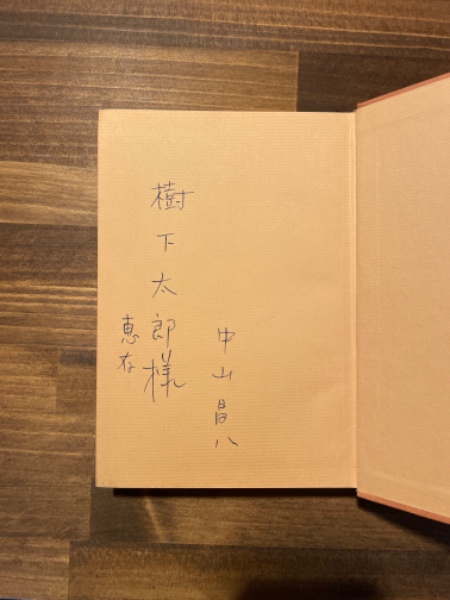 中山昌八
樹下太郎様
恵存